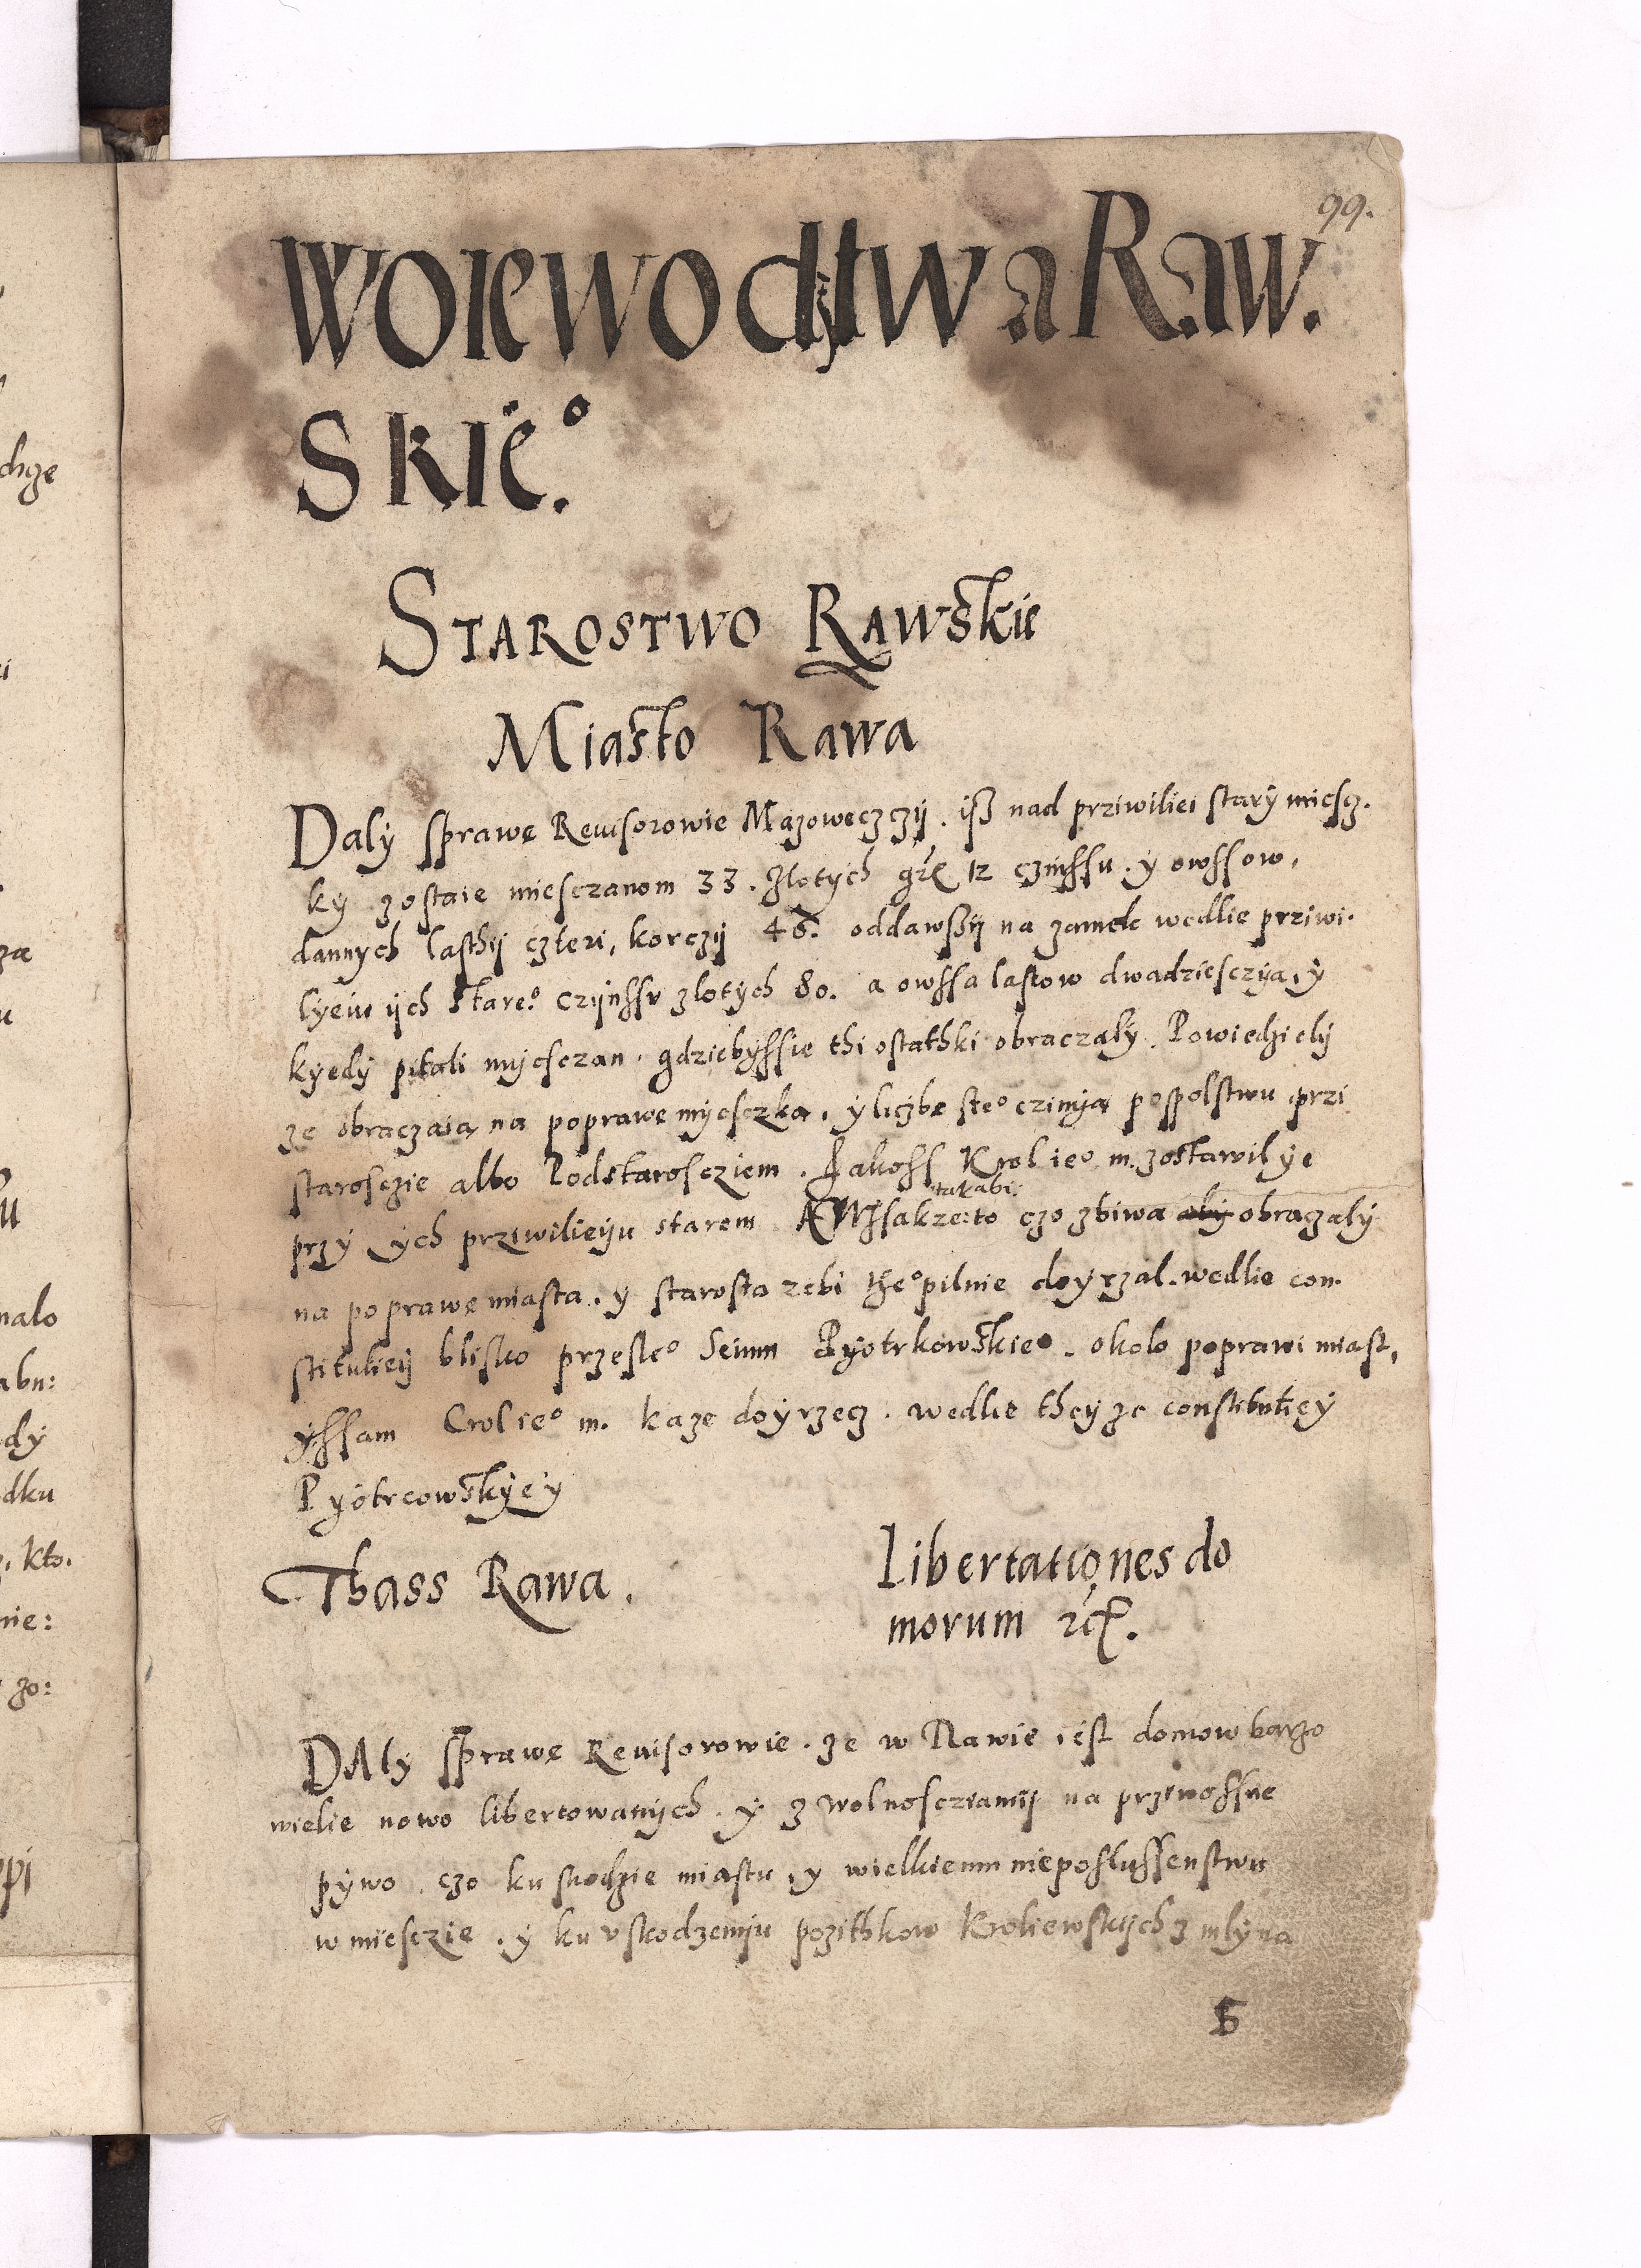 99.
Woiewodztwa Raw.
skie.º
Starostwo Rawskie
Miasto Rawa
Daly sprawe Reuisorowie Mazoweczzij. iß nad prziwiliei starÿ miescz.
kÿ zostaie miesczanom 33. zlotÿch gr 12 czinssu. ÿ owssow,
dannÿch lasthij czteri, korczij 48. oddawßij na zamek wedlie prziwi.
lÿeiu ijch stare.º czijnssu zlotÿch 80. a owssa lastow dwadziesczija, ÿ
kÿedÿ pitali mÿesczan. gdziebÿssie thi ostathki obraczalÿ. Powiedzielÿ
ze obraczaia na poprawe mÿesczka. ÿ liczbe steº czinÿa pospolstwu przi
starosczie albo Podstaroscziem. Jakoss Krol ieº m. zostawil ÿe
takabi:
przÿ ÿch prziwilieÿu starem. A Wssakze: to czo zbiwa abÿ obraczalÿ
na poprawe miasta. ÿ starosta zebi theº pilnie doÿrzal. wedlie con.
stitutieÿ blisko przesleº Seimu Pÿotrkowskieº. okolo poprawi miast,
ÿssam Crol ieº m. kaze doÿrzecz. wedlie theÿ ze constitutieÿ
Pÿotrcowskÿeÿ
Thass Rawa.
Libertationes do
morum etc.
DAlÿ sprawe Reuisorowie. ze w Rawie iest domow barzo
wielie nowo libertowanÿch. ÿ z wolnosczÿamij na przinossne
pÿwo. czo ku skodzie miastu, ÿ wielkiemu nieposlussenstwu
w miesczie. ÿ ku vskodzeniju pozithkow Kroliewskijch z mlÿna